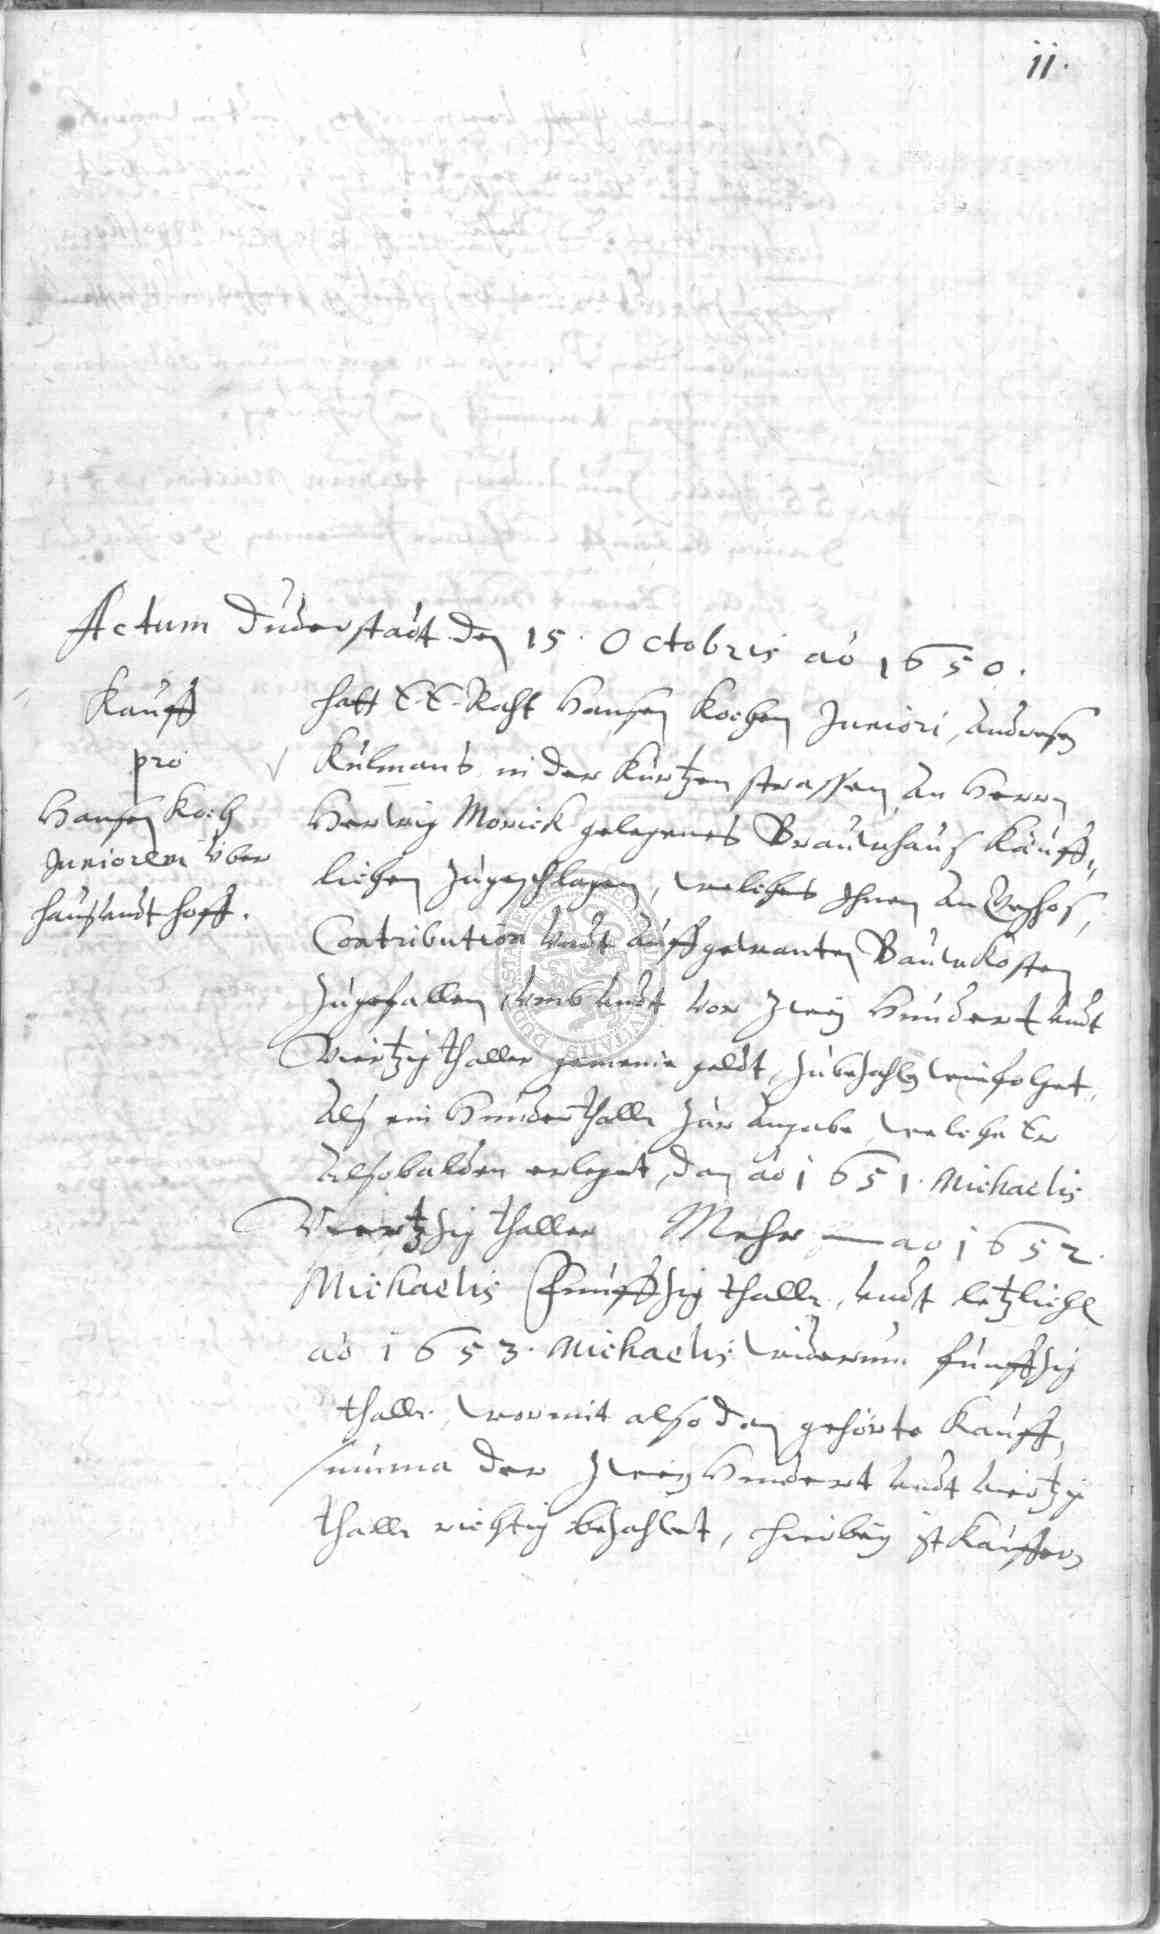 ii.
Actum Duderstadt den 15. Octobris aō 1650.
Kauff
pro
Hansen Koch
Juniorem über
hauß undt hoff.
hatt E. E. Raht Hansen Kochen Juniori, Andresen
Külmans in der Kurtzen strassen, an Herrn
Herwig Morick gelegenes Brauwhauß Kauff„
lichen zugeschlagen, welches Ihnen an Vorschos,
Contribution undt auffgewanten Bauwkosten
zugefallen, umb undt vor zweÿ Hundert undt
Viertzig thaller gemeine geldt, zubezahlen wie folget,
Alß ein Hundert thaller zur angabe, welche Er
Alsobalden erleget, dan aō 1651. Michaelis
Viertzig thaller Mehr — ao 1652.
Michaelis Funffzig thaller, undt letzlichen
aō 1653. Michaelis widerumb funffzig
thaller, wormit also dan gehörte Kauff,
summa der zweÿ Hundert undt viertzig
thaller richtig bezahlet, hierbeÿ ist Kauffern